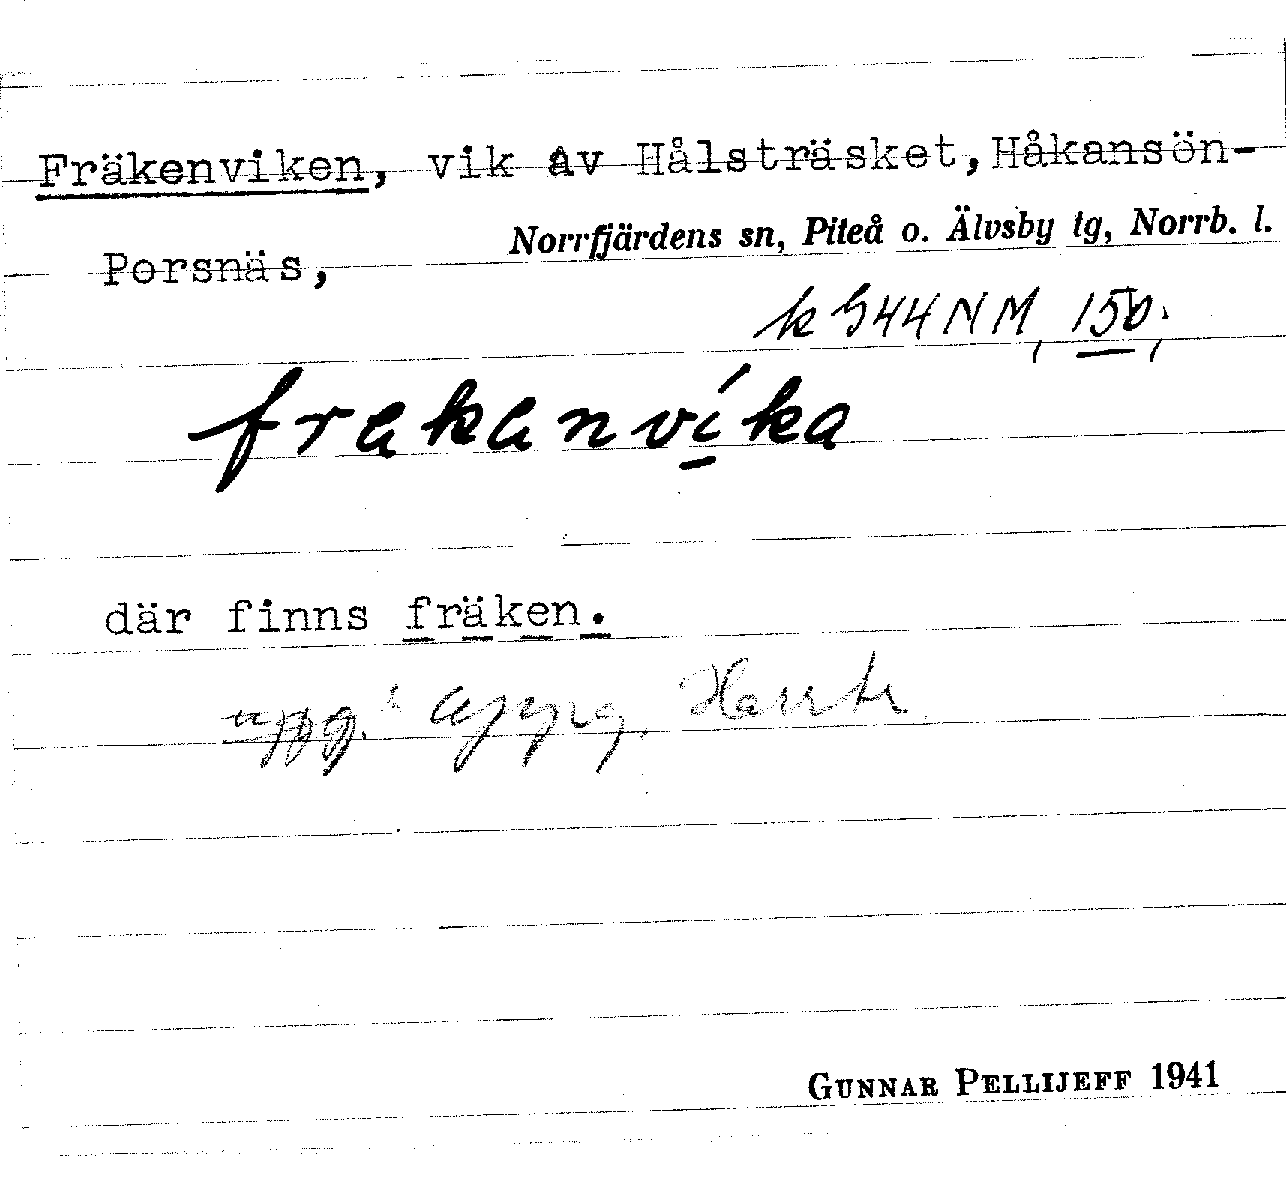 Fräkenviken, vik av Hålsträsket, Håkansön-
Norrfjärdens sn, Piteå o. Älvsby tg, Norrb. l.
Porsnäs,
k G44NM, 150;
frakanvíka
där finns fräken.
uppg.
GUNNAR PELLIJEFF 1941